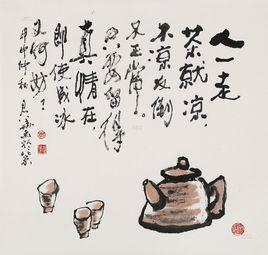 人一走
茶就凉，
不凉反倒
不正常。
只要留得
真情在，
即使成冰
又何妨
甲申仲秋